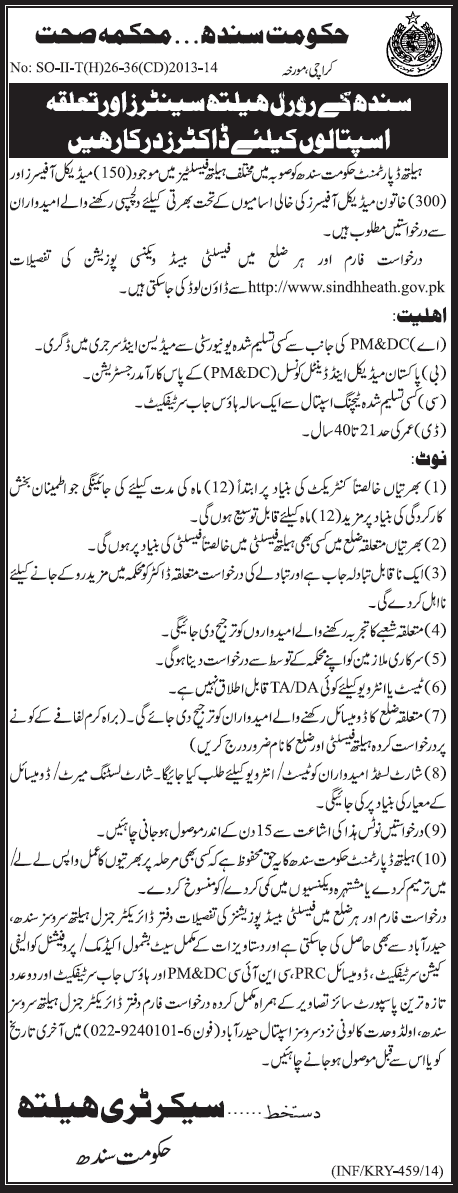 حکومت سندھ... محکمہ صحت
No: SO-II-T(H)26-36(CD)2013-14 کراچی، مورخہ
سندھ کے رورل ھیلتھ سینٹرز اور تعلقہ
اسپتالوں کیلئے ڈاکٹرز درکار ھیں
ہیلتھ ڈپارٹمنٹ حکومت سندھ کو صوبہ میں مختلف ہیلتھ فیسلٹیز میں موجود (150) میڈیکل آفیسرز اور
(300) خاتون میڈیکل آفیسرز کی خالی اسامیوں کے تحت بھرتی کیلئے دلچسپی رکھنے والے امیدواران
سے درخواستیں مطلوب ہیں۔
درخواست فارم اور ہر ضلع میں فیسلٹی بیسڈ ویکنسی پوزیشن کی تفصیلات
http://www.sindhheath.gov.pk سے ڈاؤن لوڈ کی جاسکتی ہیں۔
اھلیت:
(اے) PM&DC کی جانب سے کسی تسلیم شدہ یونیورسٹی سے میڈیسن اینڈ سرجری میں ڈگری۔
(بی) پاکستان میڈیکل اینڈ ڈینٹل کونسل (PM&DC) کے پاس کارآمد رجسٹریشن۔
(سی) کسی تسلیم شدہ ٹیچنگ اسپتال سے ایک سالہ ہاؤس جاب سرٹیفکیٹ۔
(ڈی) عمر کی حد 21 تا 40 سال۔
نوٹ:
(1) بھرتیاں خالصتاً کنٹریکٹ کی بنیاد پر ابتدأ (12) ماہ کی مدت کیلئے کی جائینگی جو اطمینان بخش
کارکردگی کی بنیاد پر مزید (12) ماہ کیلئے قابل توسیع ہوں گی۔
(2) بھرتیاں متعلقہ ضلع میں کسی بھی ہیلتھ فیسلٹی میں خالصتاً فیسلٹی کی بنیاد پر ہوں گی۔
(3) ایک ناقابل تبادلہ جاب ہے اور تبادلے کی درخواست متعلقہ ڈاکٹر کو محکمہ میں مزید روکے جانے کیلئے
نااہل کردے گی۔
(4) متعلقہ شعبے کا تجربہ رکھنے والے امیدواروں کو ترجیح دی جائیگی۔
(5) سرکاری ملازمین کو اپنے محکمہ کے توسط سے درخواست دینا ہوگی۔
(6) ٹیسٹ یا انٹرویو کیلئے کوئی TA/DA قابل اطلاق نہیں ہے۔
(7) متعلقہ ضلع کا ڈومیسائل رکھنے والے امیدواران کو ترجیح دی جائے گی۔ (براہ کرم لفافے کے کونے
پر درخواست کردہ ہیلتھ فیسلٹی اور ضلع کا نام ضرور درج کریں)
(8) شارٹ لسٹڈ امیدواران کو ٹیسٹ/ انٹرویو کیلئے طلب کیا جائیگا۔ شارٹ لسٹنگ میرٹ/ ڈومیسائل
کے معیار کی بنیاد پر کی جائیگی۔
(9) درخواستیں نوٹس ہذا کی اشاعت سے 15 دن کے اندر موصول ہوجانی چاہئیں۔
(10) ہیلتھ ڈپارٹمنٹ حکومت سندھ کا یہ حق محفوظ ہے کہ کسی بھی مرحلہ پر بھرتیوں کا عمل واپس لے لے/
میں ترمیم کردے یا مشتہرہ ویکنسیوں میں کمی کردے/ کو منسوخ کردے۔
درخواست فارم اور ہر ضلع میں فیسلٹی بیسڈ پوزیشنز کی تفصیلات دفتر ڈائریکٹر جنرل ہیلتھ سروسز سندھ،
حیدرآباد سے بھی حاصل کی جاسکتی ہے اور دستاویزات کے مکمل سیٹ بشمول اکیڈمک/ پروفیشنل کوالیفی
کیشن سرٹیفکیٹ، ڈومیسائل PRC، سی این آئی سی PM&DC اور ہاؤس جاب سرٹیفکیٹ اور دو عدد
تازہ ترین پاسپورٹ سائز تصاویر کے ہمراہ مکمل کردہ درخواست فارم دفتر ڈائریکٹر جنرل ہیلتھ سروسز
سندھ، اولڈ وحدت کالونی نزد سروسز اسپتال حیدرآباد (فون 6-9240101-022) میں آخری تاریخ
کو یا اس سے قبل موصول ہو جانے چاہئیں۔
دستخط ...... سیکرٹری ھیلتھ
حکومت سندھ
(INF/KRY-459/14)